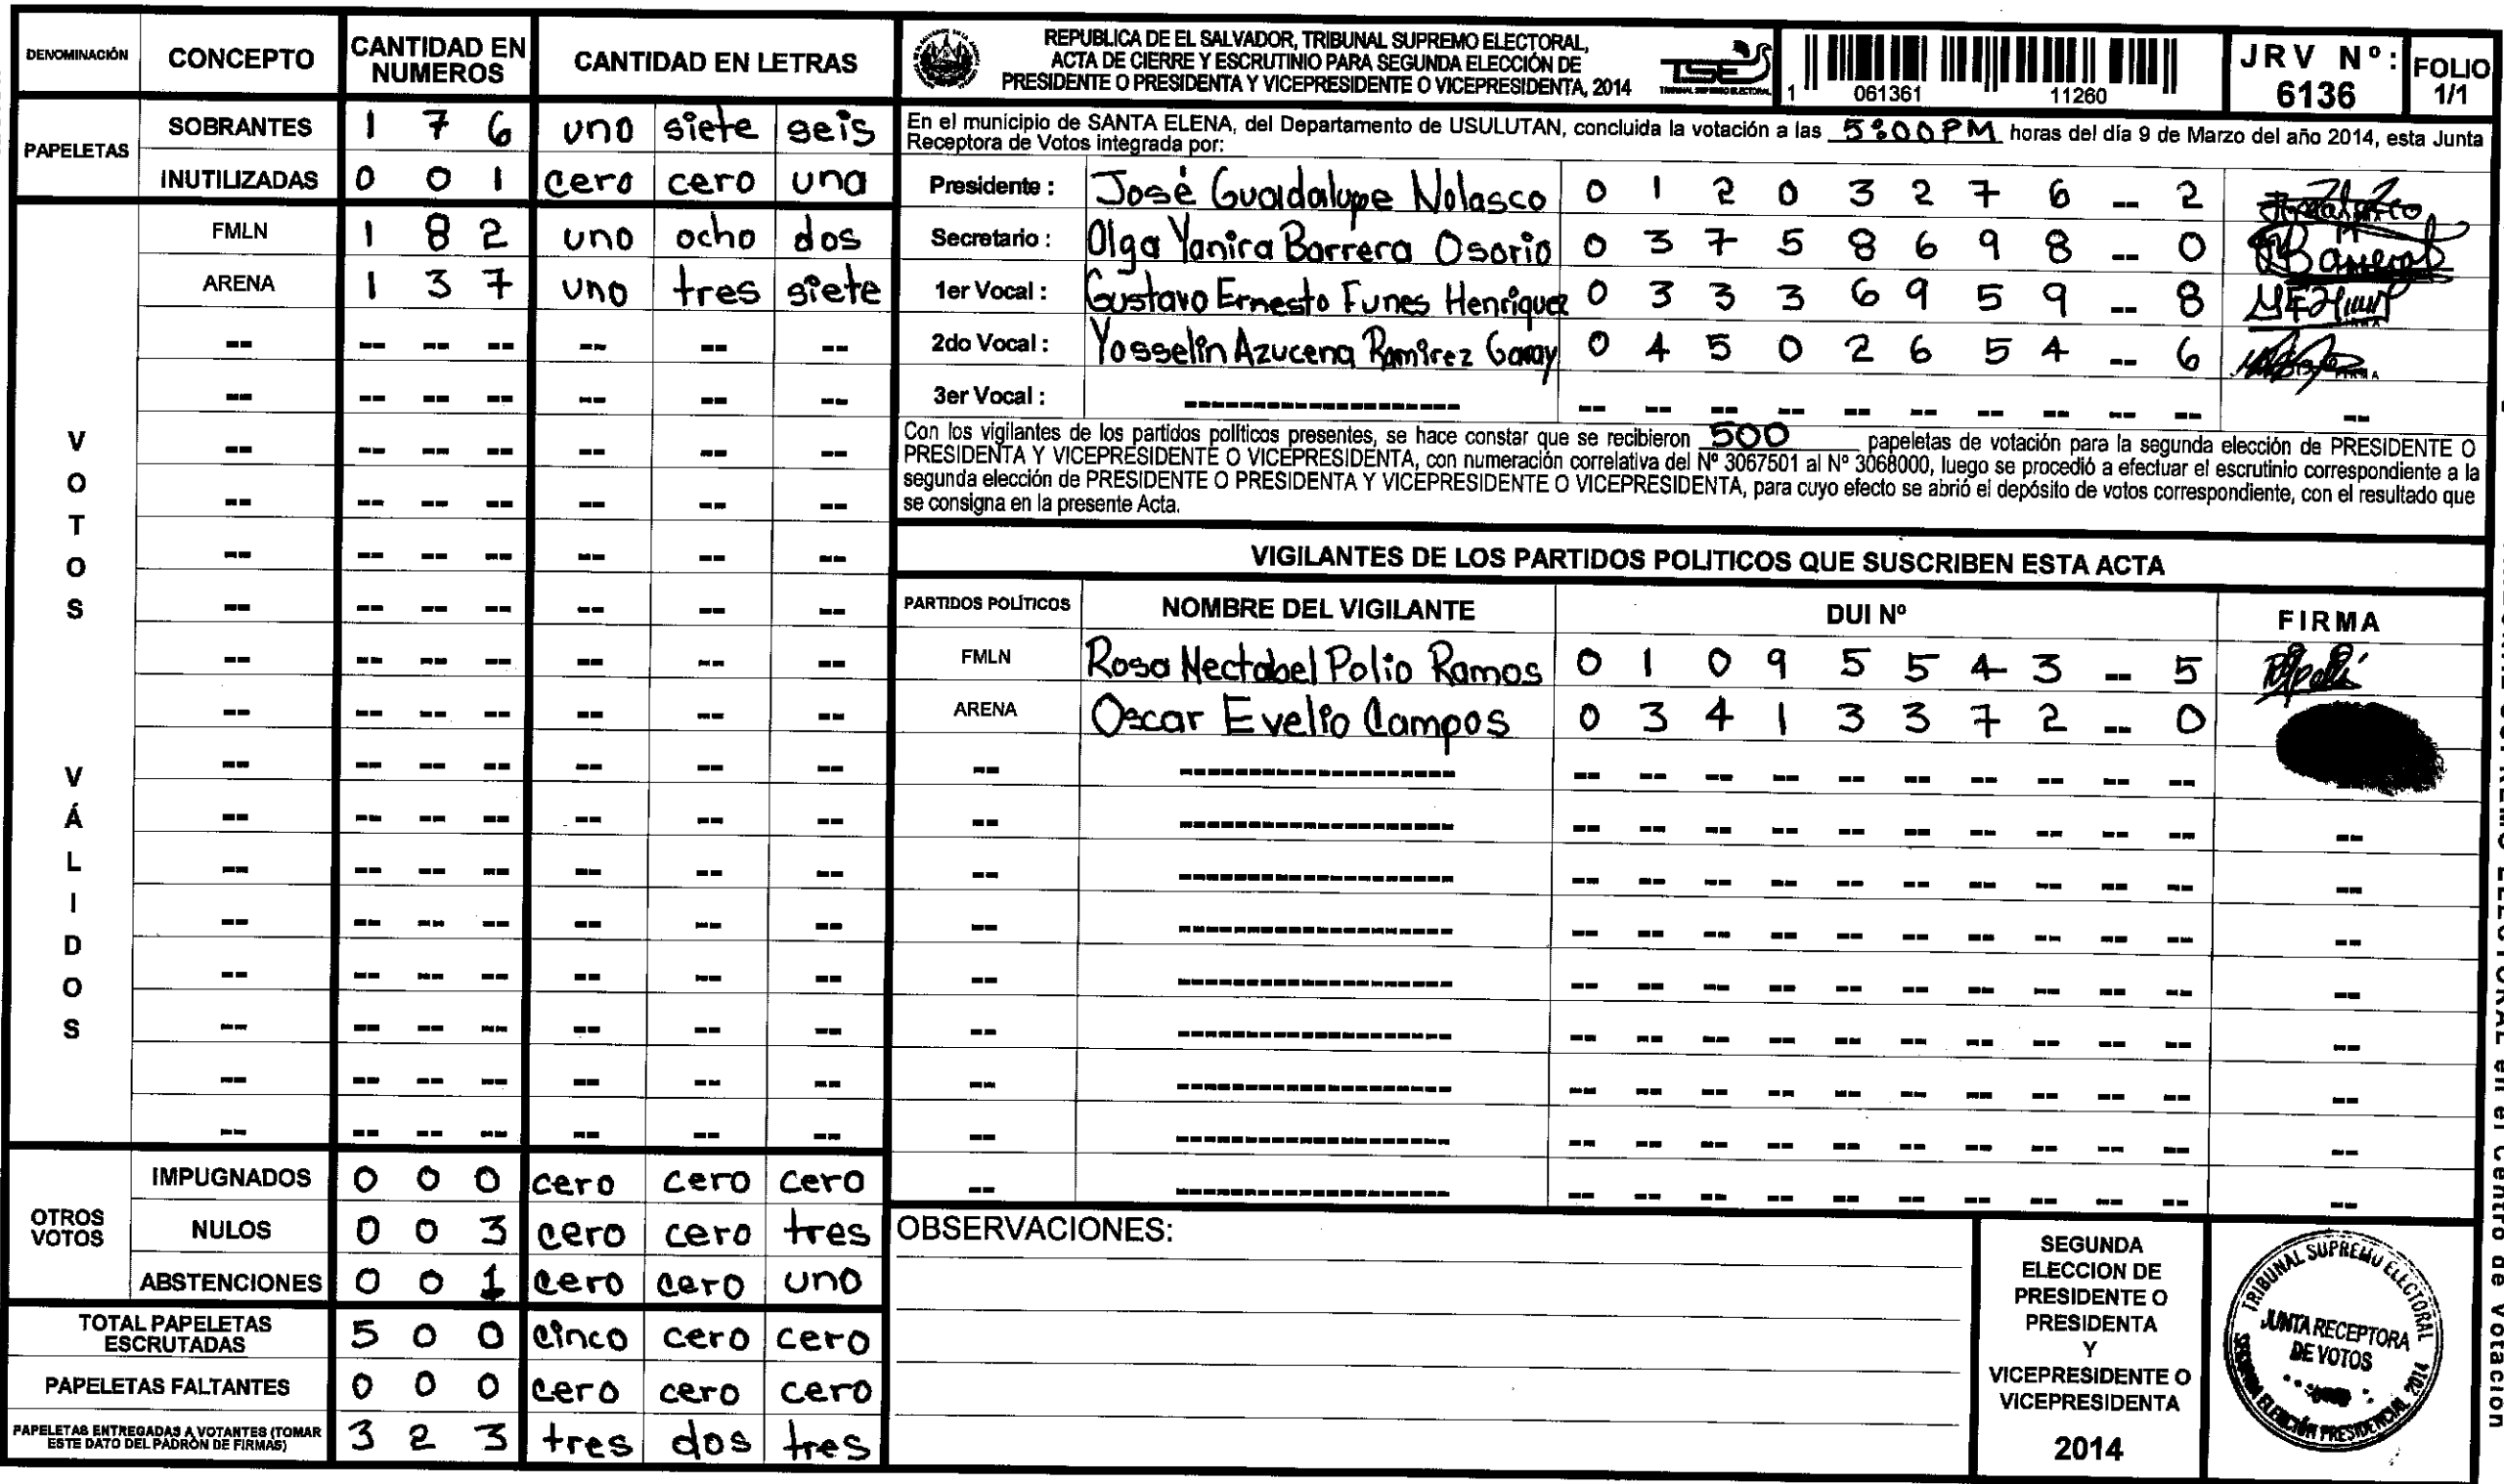 DENOMINACIÓN CONCEPTO CANTIDAD EN NUMEROS CANTIDAD EN LETRAS
PAPELETAS
SOBRANTES 1 7 6 uno siete seis
INUTILIZADAS 0 0 1 cero cero uno
VOTOS VÁLIDOS
FMLN 1 8 2 uno ocho dos
ARENA 1 3 7 uno tres siete
OTROS VOTOS
IMPUGNADOS 0 0 0 cero cero cero
NULOS 0 0 3 cero cero tres
ABSTENCIONES 0 0 1 cero cero uno
TOTAL PAPELETAS ESCRUTADAS 5 0 0 cinco cero cero
PAPELETAS FALTANTES 0 0 0 cero cero cero
PAPELETAS ENTREGADAS A VOTANTES (TOMAR ESTE DATO DEL PADRÓN DE FIRMAS) 3 2 3 tres dos tres
REPUBLICA DE EL SALVADOR, TRIBUNAL SUPREMO ELECTORAL,
ACTA DE CIERRE Y ESCRUTINIO PARA SEGUNDA ELECCIÓN DE
PRESIDENTE O PRESIDENTA Y VICEPRESIDENTE O VICEPRESIDENTA, 2014
TSE
TRIBUNAL SUPREMO ELECTORAL
1 061361 11260
JRV Nº: 6136
FOLIO 1/1
En el municipio de SANTA ELENA, del Departamento de USULUTAN, concluida la votación a las 5:00 PM horas del día 9 de Marzo del año 2014, esta Junta
Receptora de Votos integrada por:
Presidente : José Guadalupe Nolasco 0 1 2 0 3 2 7 6 -- 2
Secretario : Olga Yanira Barrera Osorio 0 3 7 5 8 6 9 8 -- 0
1er Vocal : Gustavo Ernesto Funes Henriquez 0 3 3 3 6 9 5 9 -- 8
2do Vocal : Yosselin Azucena Ramirez Garay 0 4 5 0 2 6 5 4 -- 6
3er Vocal :
Con los vigilantes de los partidos políticos presentes, se hace constar que se recibieron 500 papeletas de votación para la segunda elección de PRESIDENTE O
PRESIDENTA Y VICEPRESIDENTE O VICEPRESIDENTA, con numeración correlativa del Nº 3067501 al Nº 3068000, luego se procedió a efectuar el escrutinio correspondiente a la
segunda elección de PRESIDENTE O PRESIDENTA Y VICEPRESIDENTE O VICEPRESIDENTA, para cuyo efecto se abrió el depósito de votos correspondiente, con el resultado que
se consigna en la presente Acta.
VIGILANTES DE LOS PARTIDOS POLITICOS QUE SUSCRIBEN ESTA ACTA
PARTIDOS POLÍTICOS NOMBRE DEL VIGILANTE DUI Nº FIRMA
FMLN Rosa Nectabel Polio Ramos 0 1 0 9 5 5 4 3 -- 5
ARENA Oscar Evelio Campos 0 3 4 1 3 3 7 2 -- 0
OBSERVACIONES:
SEGUNDA
ELECCION DE
PRESIDENTE O
PRESIDENTA
Y
VICEPRESIDENTE O
VICEPRESIDENTA
2014
TRIBUNAL SUPREMO ELECTORAL
JUNTA RECEPTORA
DE VOTOS
SEGUNDA ELECCIÓN PRESIDENCIAL 2014
SUPREMO ELECTORAL en el Centro de Votación